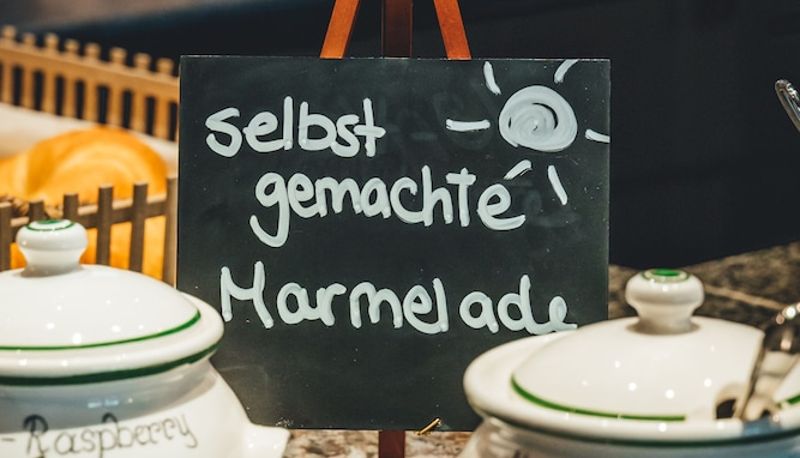 selbst
gemachte
Marmelade
- Raspberry